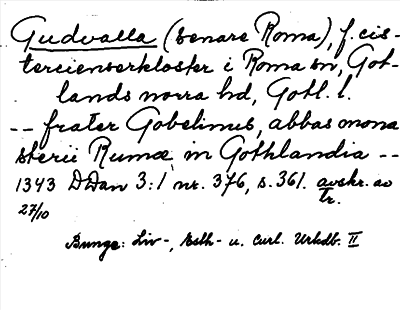 Gudvalla (senare Roma), f. cis-
tercienserkloster i Roma sn, Got-
lands norra hd, Gotl. l.
-- frater Gobelinus, abbas mona
sterii Rumæ in Gothlandia --
1343 DDan 3:1 nr. 376, s. 361. avskr. av
27/10 tr.
Bunge: Liv-, Esth- u. Curl. Urkdb. II